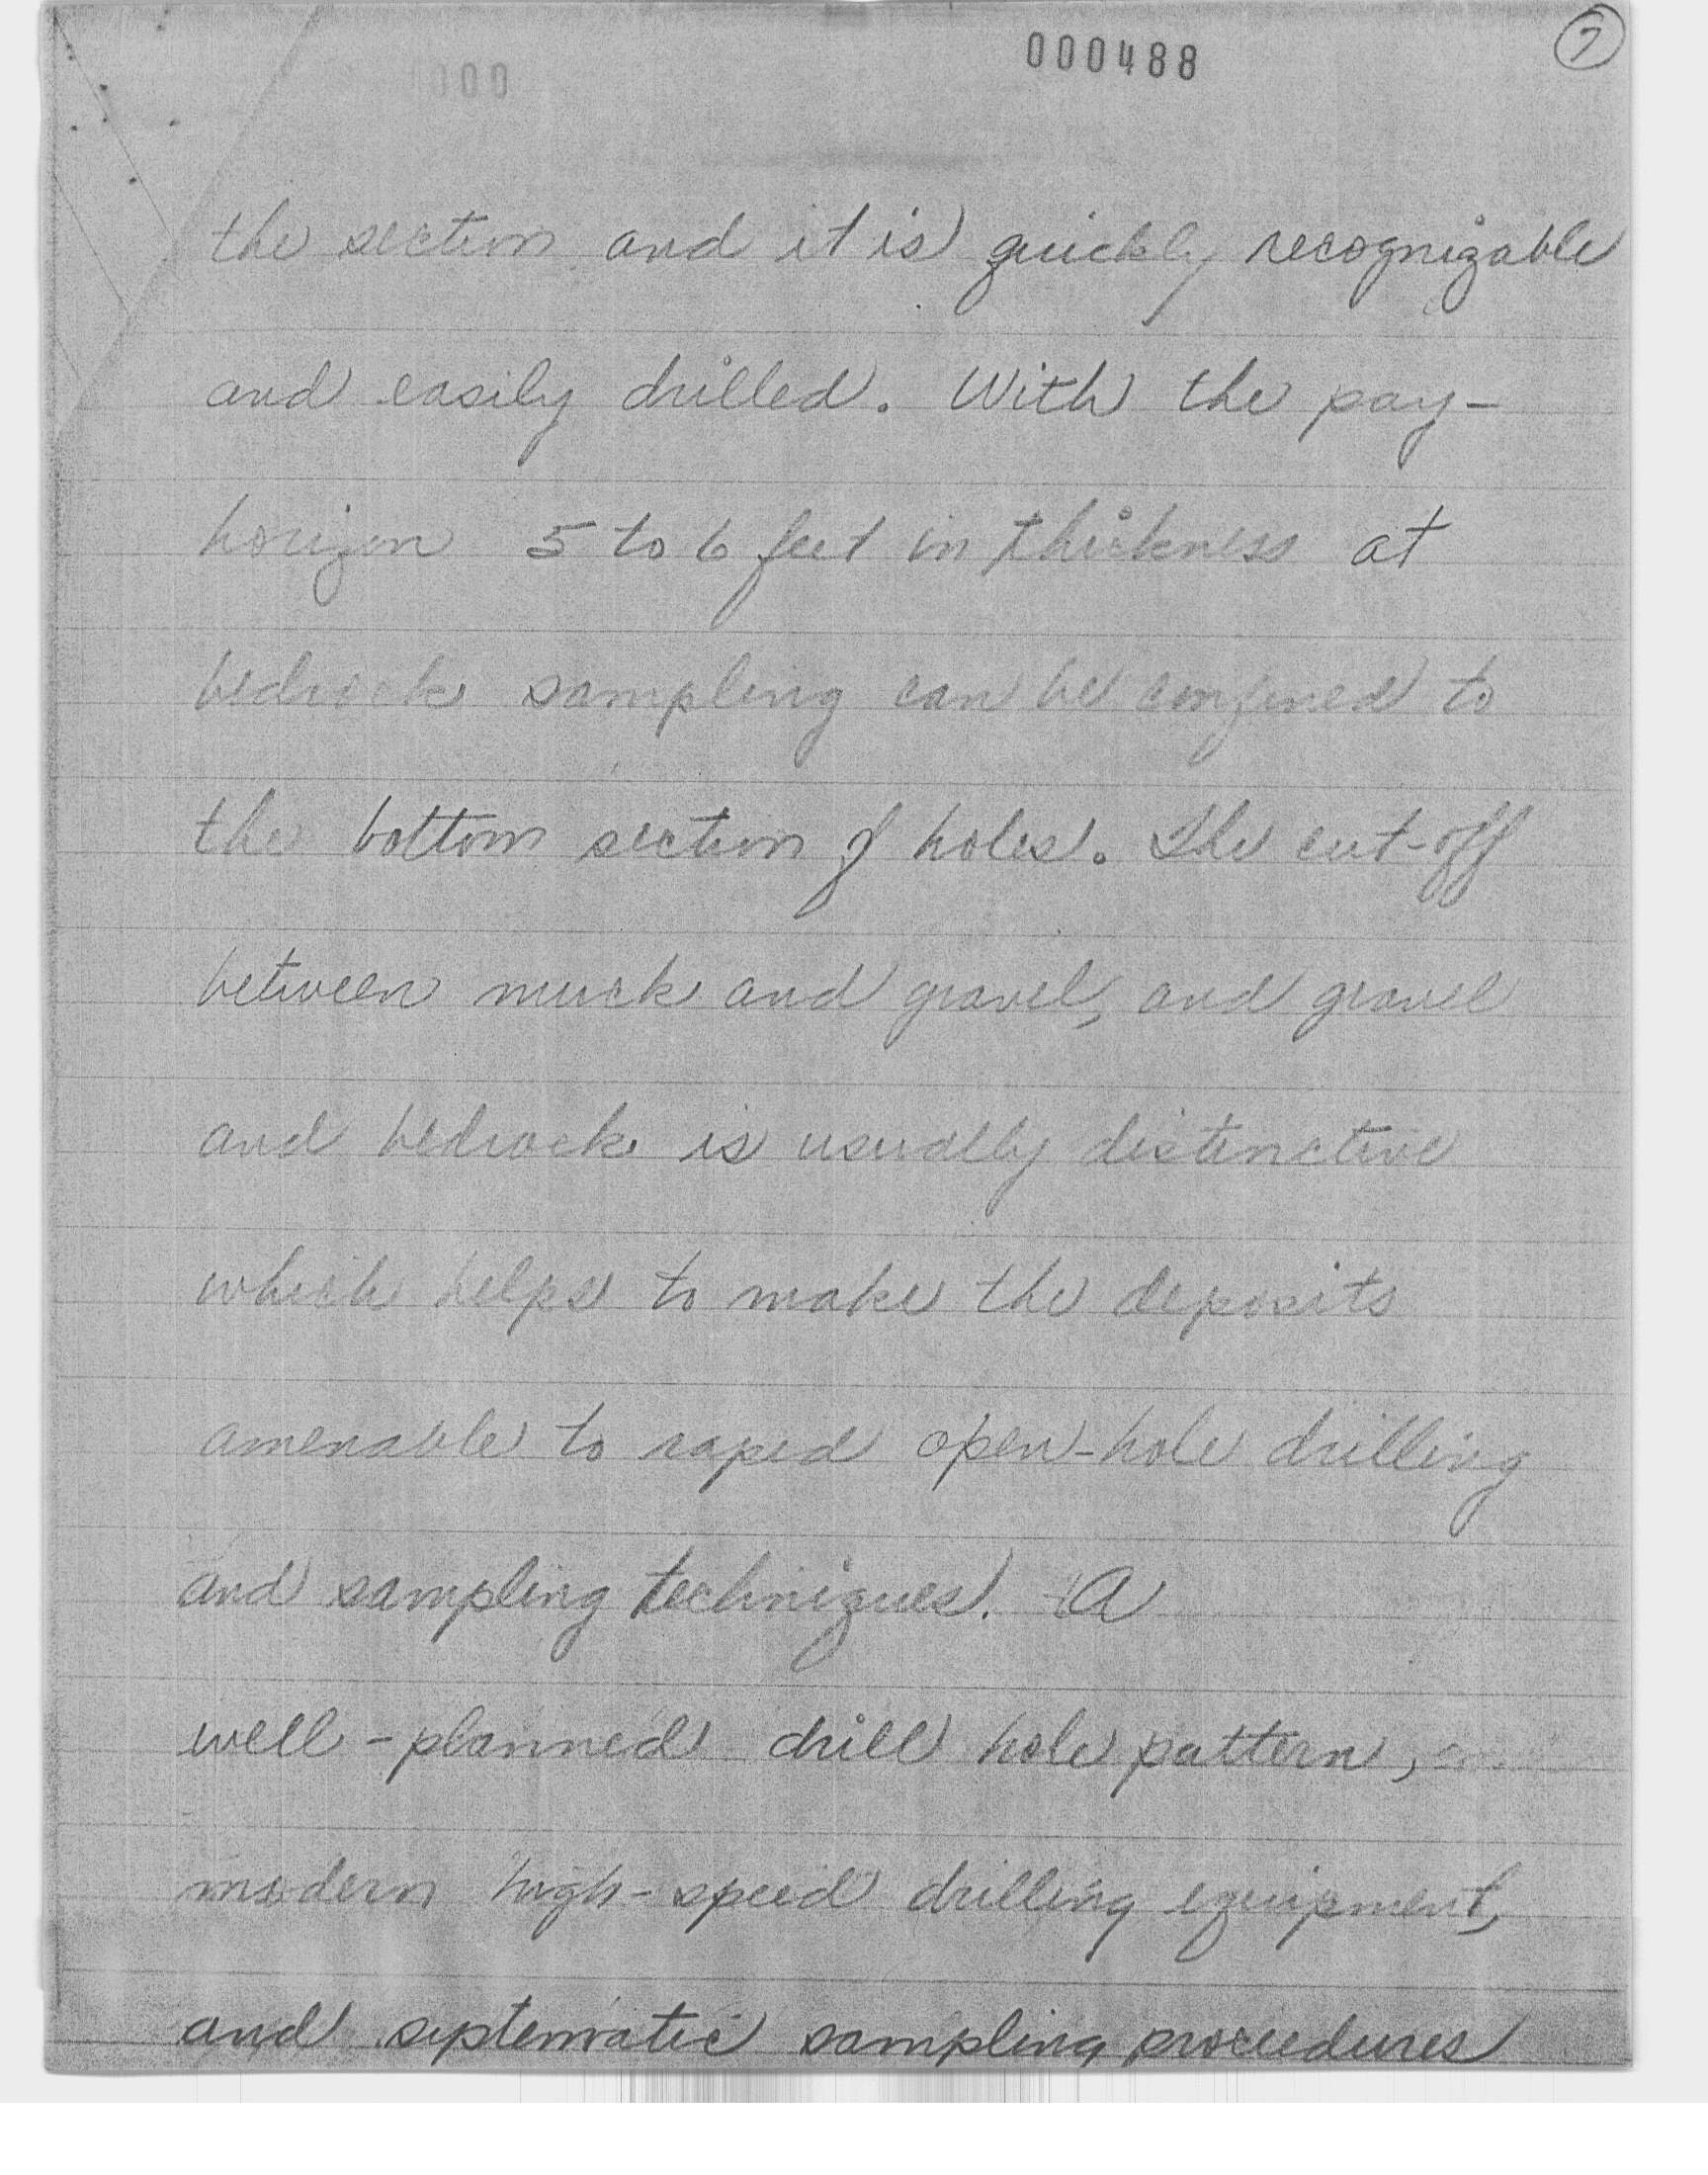 000488
7
000
the section and it is quickly recognizable
and easily drilled. With the pay-
horizon 5 to 6 feet in thickness at
bedrock sampling can be confined to
the bottom section of holes. The cut-off
between muck and gravel, and gravel
and bedrock is usually distinctive
which helps to make the deposits
amenable to rapid open-hole drilling
and sampling techniques. A
well-planned drill hole pattern,
modern high-speed drilling equipment,
and systematic sampling procedures